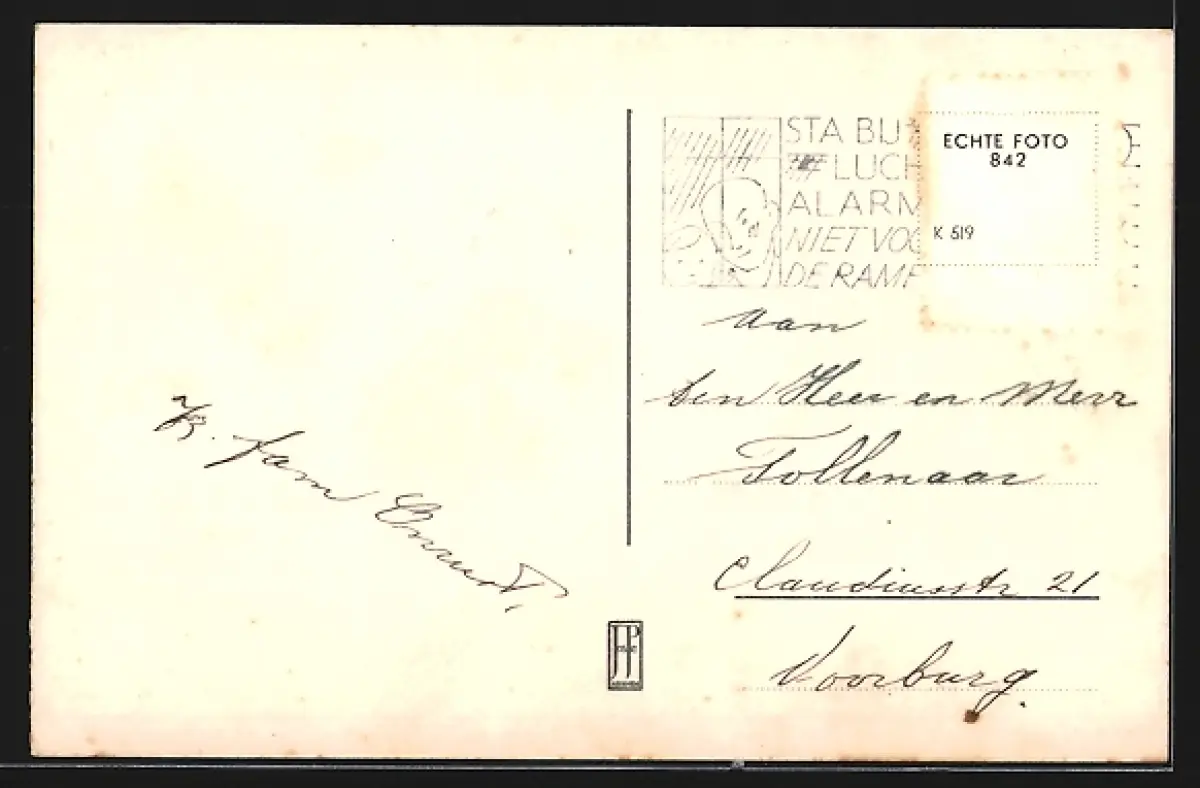 STA BIJ
LUCH
ALARM
NIET VOO
DE RAMP
ECHTE FOTO
842
K 519
aan
den Heer en Mevr
Tollenaar
Claudiusstr 21
Voorburg.
fam
JP